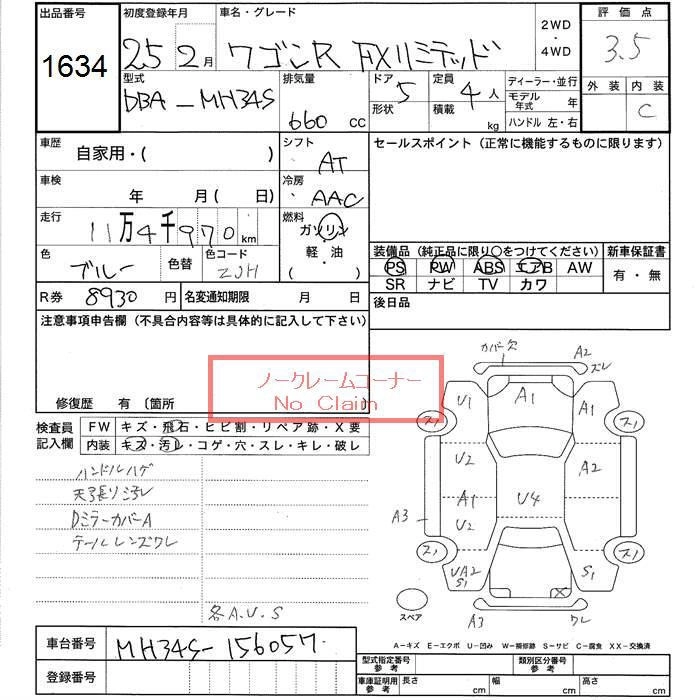 出品番号 初度登録年月 車名・グレード 2WD・4WD 評価点
1634 25 2月 ワゴンR FXリミテッド 3.5
型式 排気量 ドア 定員 ディーラー・並行 外装 内装
DBA-MH34S 660 cc 5 4人 モデル年式 年 C
形状 積載 kg ハンドル 左・右
車歴 自家用・( ) シフト AT セールスポイント (正常に機能するものに限ります)
車検 年 月( 日) 冷房 AAC
走行 11万4千970km 燃料 ガソリン
軽・油
・( )
色 ブルー 色替 色コード ZJH
装備品 (純正品に限り○をつけてください) 新車保証書
PS PW ABS エアB AW 有・無
SR ナビ TV カワ
R券 8930円 名変通知期限 月 日 後日品
注意事項申告欄 (不具合内容等は具体的に記入して下さい)
ノークレームコーナー
No Claim
修復歴 有 〔箇所
検査員記入欄 FW キズ・飛石・ヒビ割・リペア跡・X要
内装 キズ・汚レ・コゲ・穴・スレ・キレ・破レ
ハンドルハゲ
天張り汚レ
DミラーカバーA
テールレンズワレ
各A.U.S
カバー欠 A2 ズレ
U1 A1 A1
ス1 ス1
U2 A2
A3 A1 U4
U2
ス1 ス1
UA2 S1 S1
X
スペア A3 ワレ
A-キズ E-エクボ U-凹み W-補修跡 S-サビ C-腐食 XX-交換済
車台番号 MH34S-156057
登録番号
型式指定番号参考 類別区分番号参考
車庫証明用参考 長さ cm 幅 cm 高さ cm